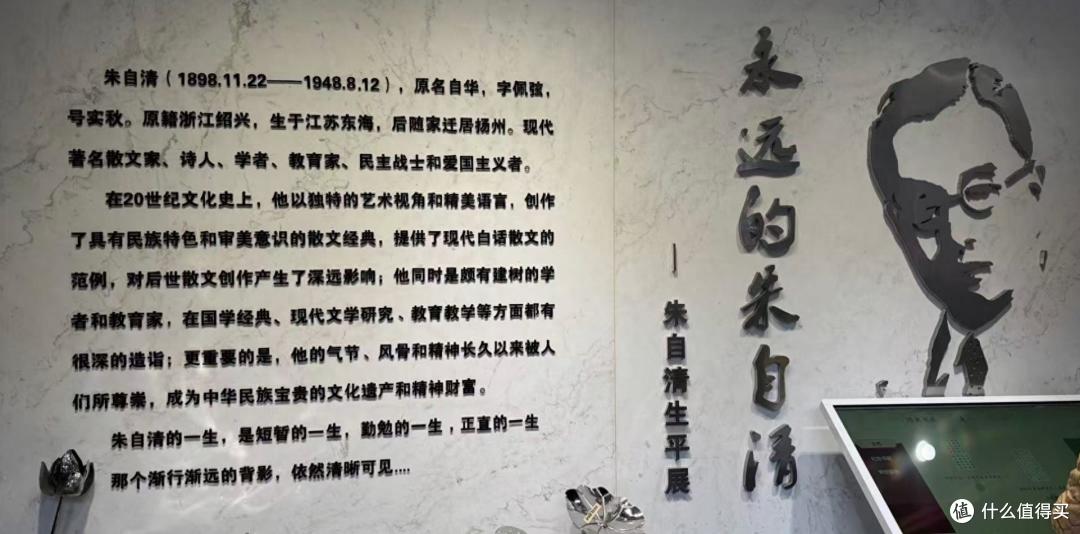 朱自清（1898.11.22——1948.8.12），原名自华，字佩弦，
号实秋。原籍浙江绍兴，生于江苏东海，后随家迁居扬州。现代
著名散文家、诗人、学者、教育家、民主战士和爱国主义者。
在20世纪文化史上，他以独特的艺术视角和精美语言，创作
了具有民族特色和审美意识的散文经典，提供了现代白话散文的
范例，对后世散文创作产生了深远影响；他同时是颇有建树的学
者和教育家，在国学经典、现代文学研究、教育教学等方面都有
很深的造诣；更重要的是，他的气节、风骨和精神长久以来被人
们所尊崇，成为中华民族宝贵的文化遗产和精神财富。
朱自清的一生，是短暂的一生，勤勉的一生，正直的一生
那个渐行渐远的背影，依然清晰可见....
永远的朱自清
—朱自清生平展
值 什么值得买